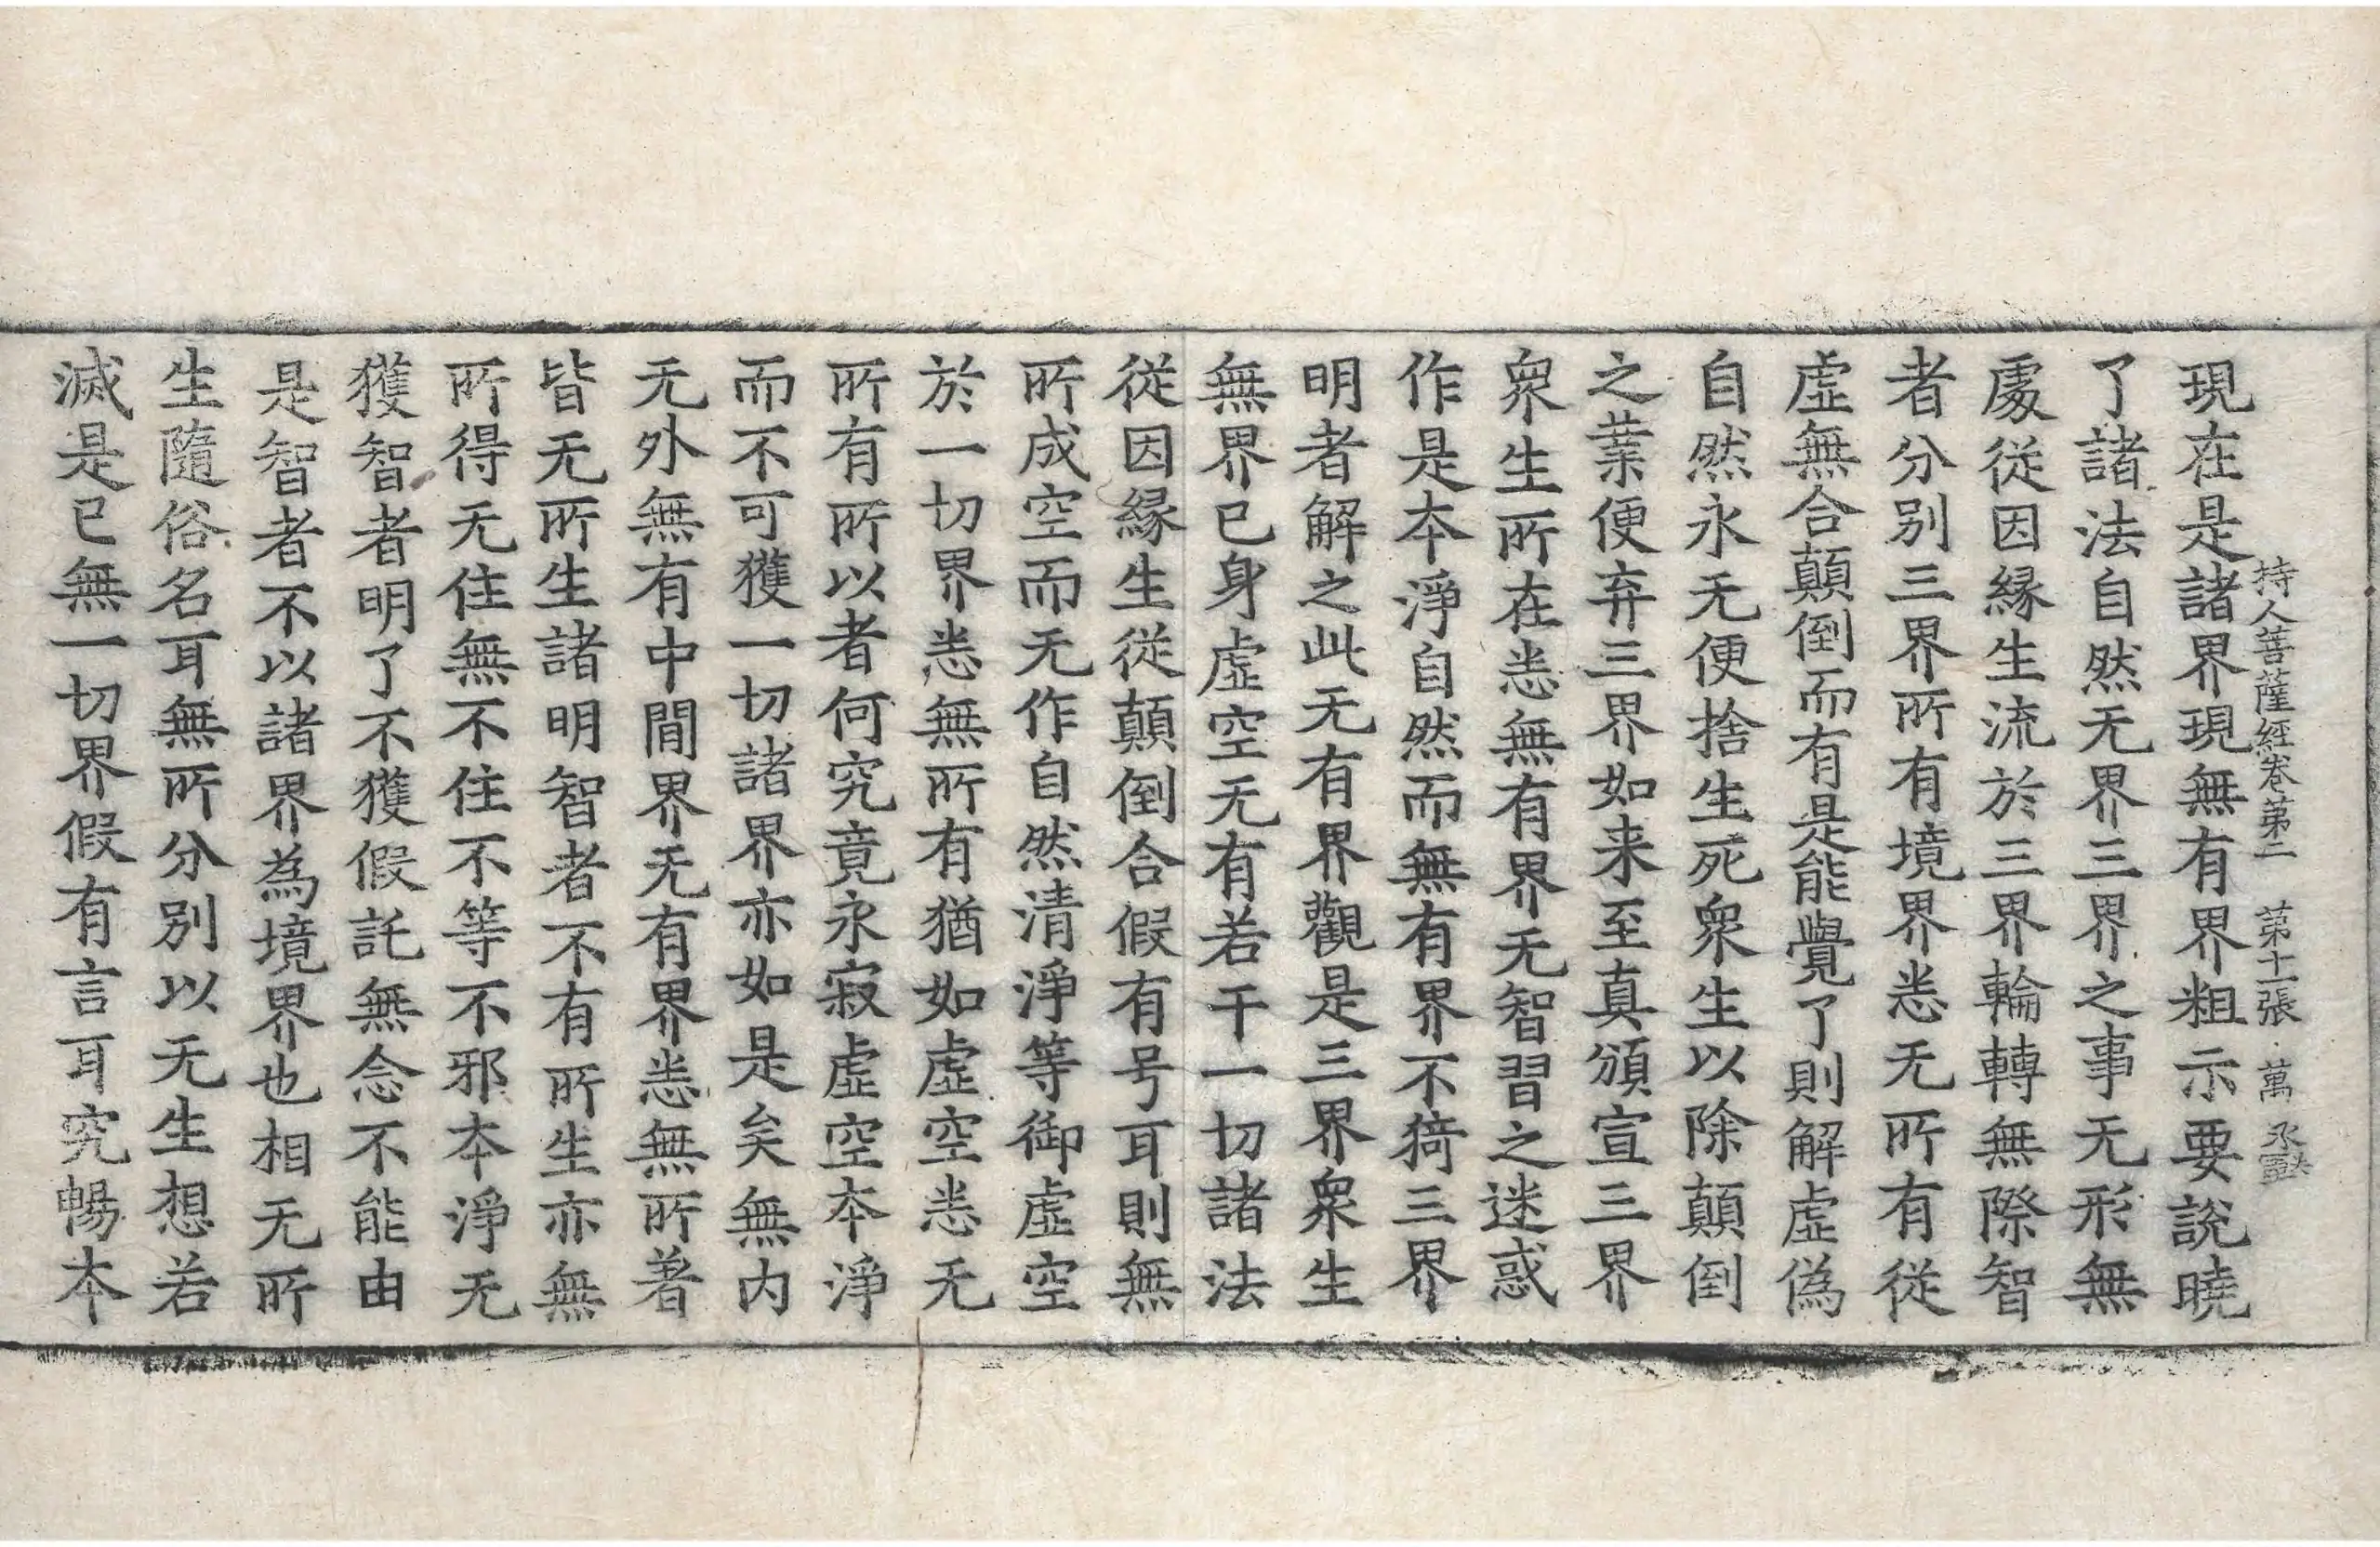 持人菩薩經卷第二 第十一張 萬
現在是諸界現無有界粗示要說曉
了諸法自然无界三界之事无形無
處從因緣生流於三界輪轉無際智
者分别三界所有境界悉无所有從
虛無合顛倒而有是能覺了則解虛偽
自然永无便捨生死衆生以除顛倒
之業便弃三界如来至真頒宣三界
衆生所在悉無有界无智習之迷惑
作是本淨自然而無有界不猗三界
明者解之此无有界觀是三界衆生
無界已身虛空无有若干一切諸法
從因緣生從顛倒合假有号耳則無
所成空而无作自然清淨等御虛空
於一切界悉無所有猶如虛空悉无
所有所以者何究竟永寂虛空本淨
而不可獲一切諸界亦如是矣無内
无外無有中間界无有界悉無所著
皆无所生諸明智者不有所生亦無
所得无住無不住不等不邪本淨无
獲智者明了不獲假託無念不能由
是智者不以諸界為境界也相无所
生隨俗名耳無所分別以无生想若
滅是已無一切界假有言耳究暢本